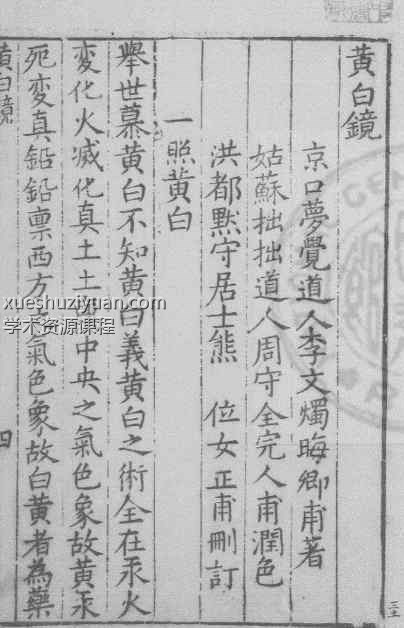 黄白鏡
京口夢覺道人李文燭晦卿甫著
姑蘇拙拙道人周守全完人甫潤色
洪都默守居士熊 位女正甫刪訂
一照黄白
舉世慕黄白不知黄白義黄白之術全在汞火
變化火滅化真土土 中央之氣色象故黄汞
死變真鉛鉛禀西方 氣色象故白黄者為藥
黄白鏡
四
xueshuziyuan.com
学术资源课程